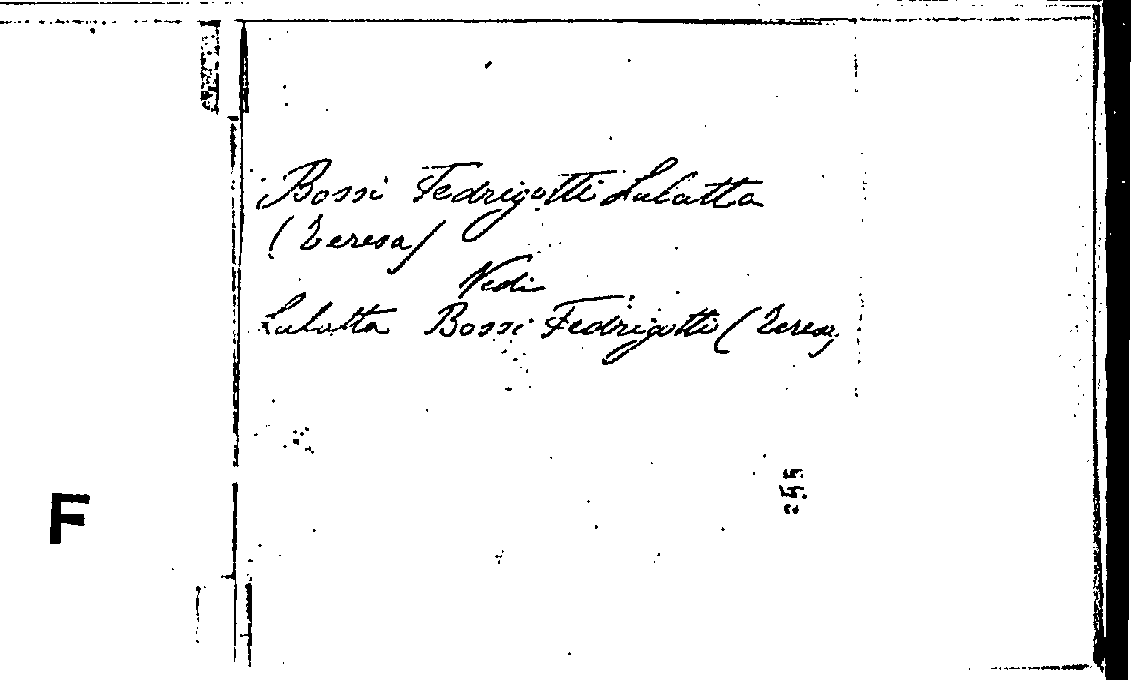 Bossi Fedrigotti Lalatta
(Teresa)
Vedi
Lalatta Bossi Fedrigotti (Teresa
F
255